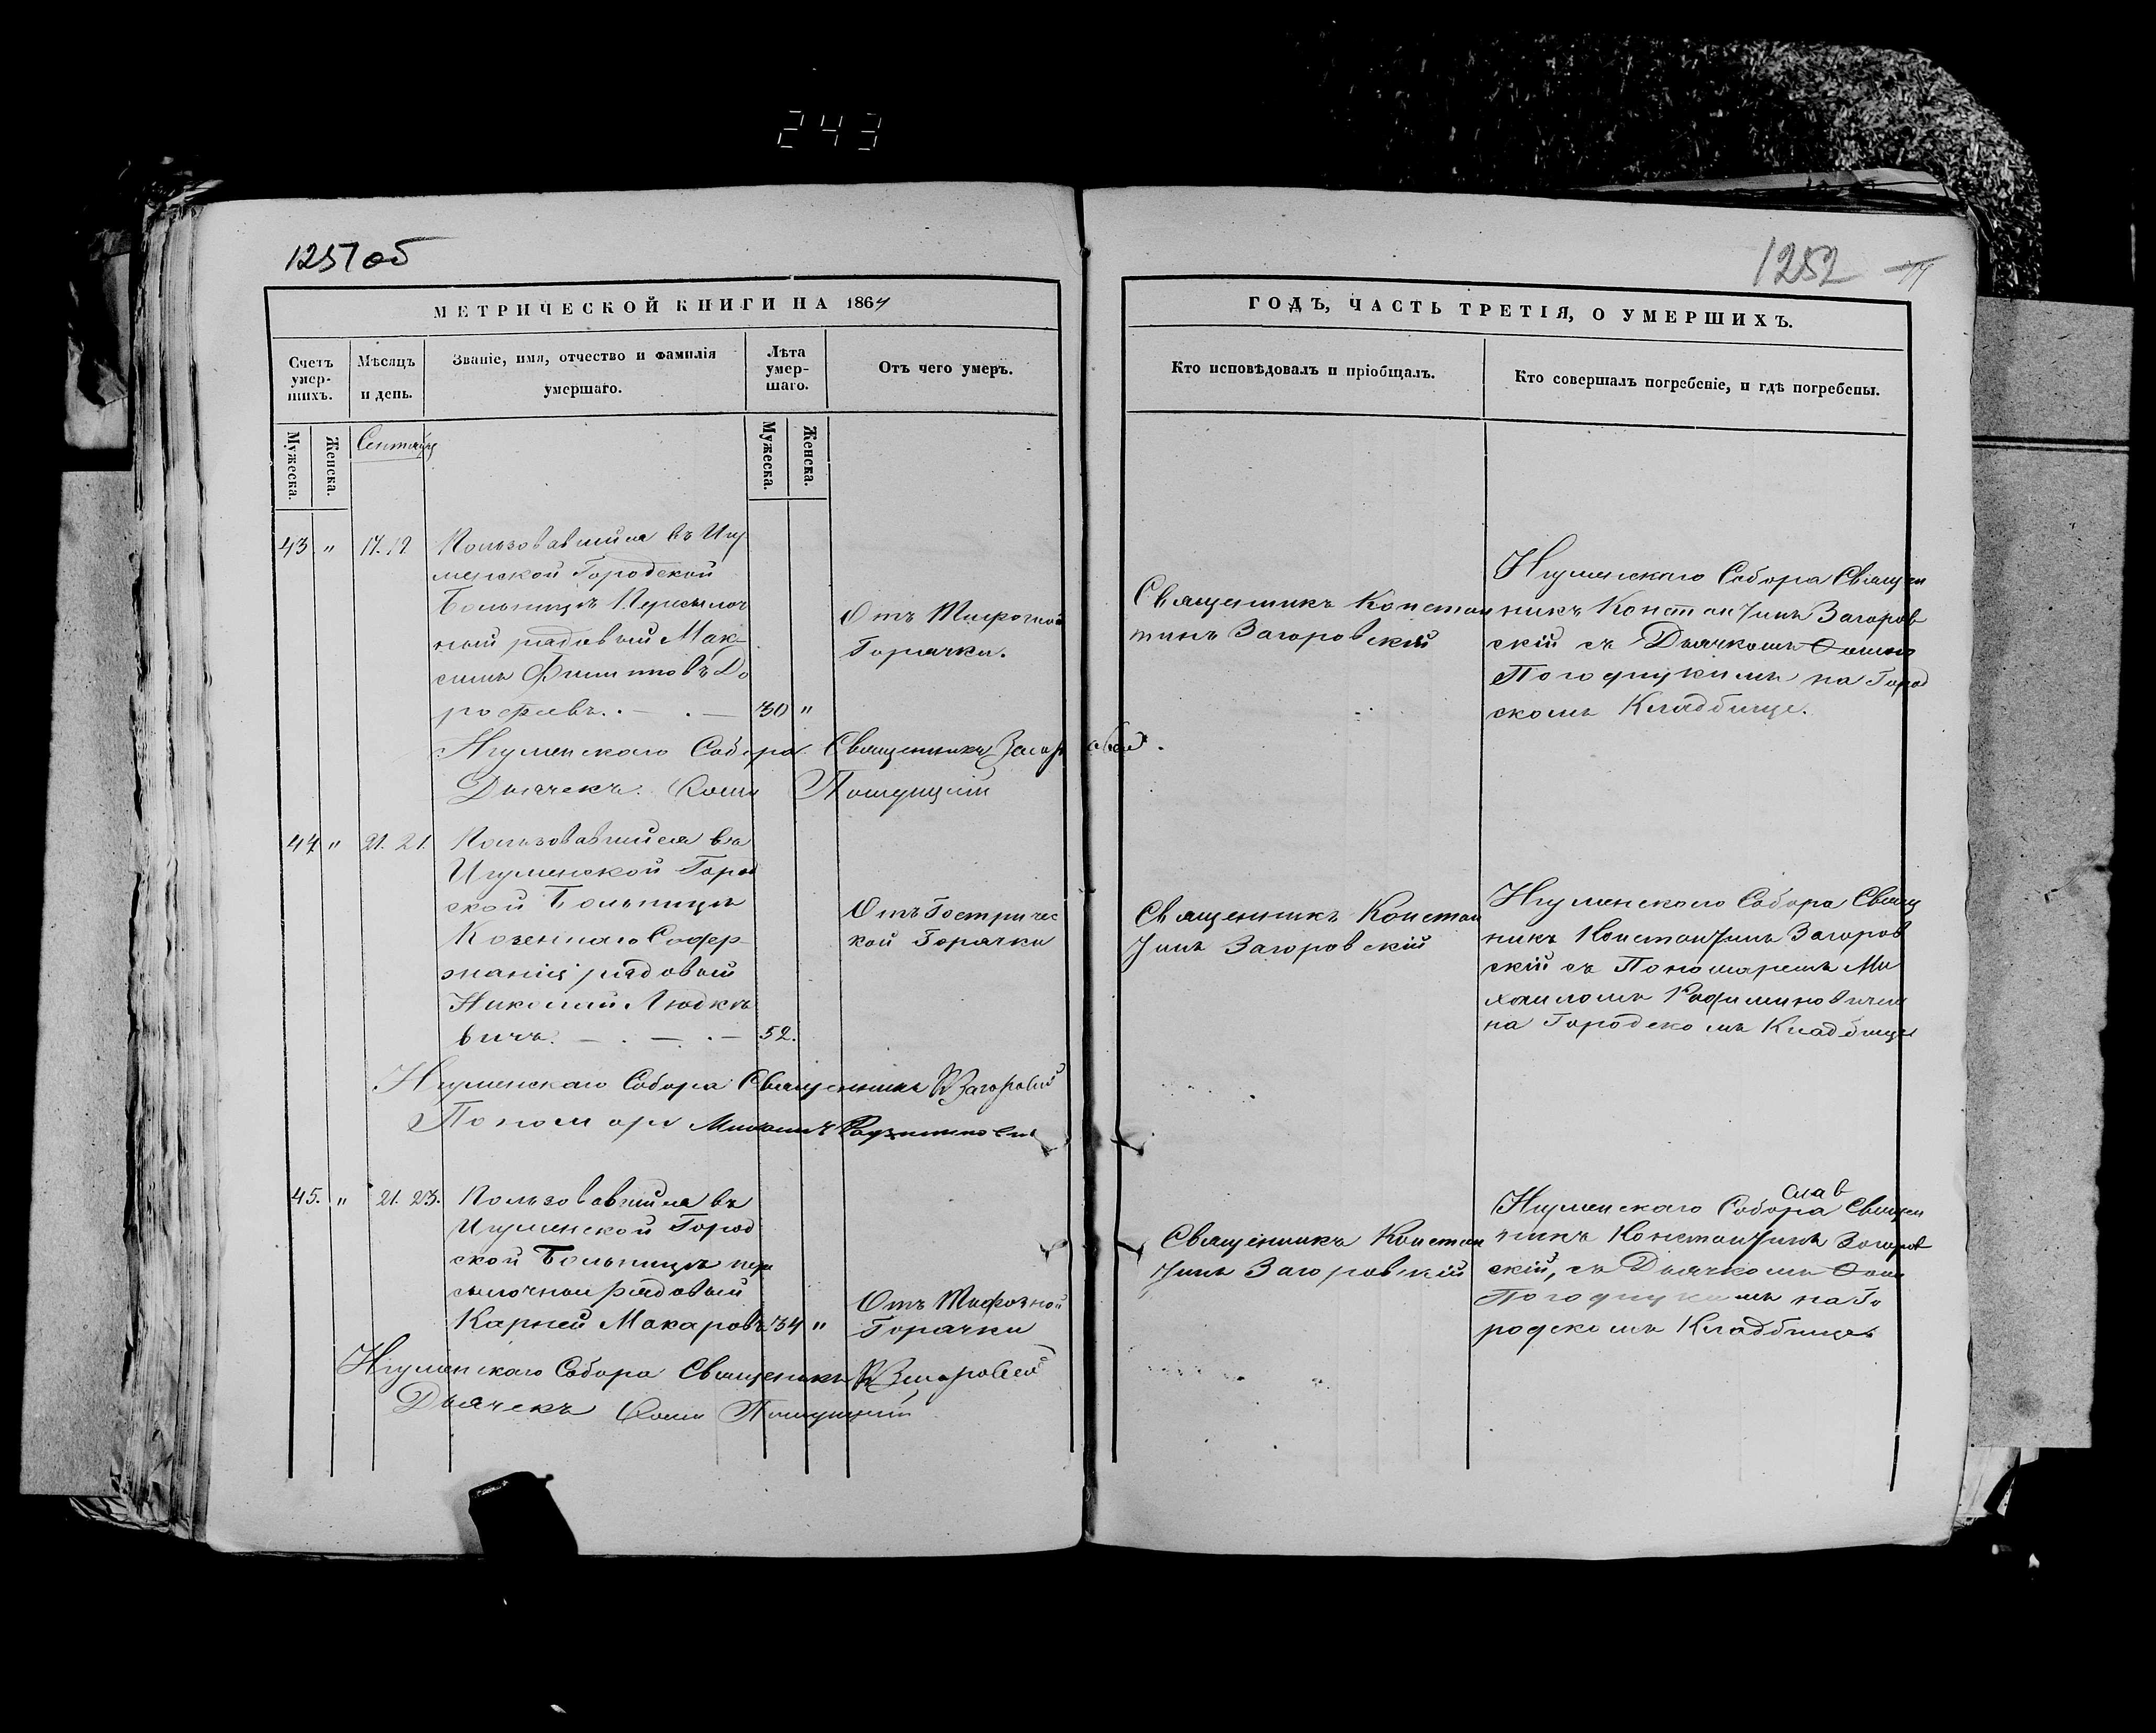 243
1251 об
1252
МЕТРИЧЕСКОЙ КНИГИ НА 1864
ГОДЪ, ЧАСТЬ ТРЕТІЯ, О УМЕРШИХЪ.
Счетъ умер-шихъ.
Мѣсяцъ и день.
Званіе, имя, отчество и фамилія умершаго.
Лѣта умер-шаго.
Отъ чего умеръ.
Кто исповѣдовалъ и пріобщалъ.
Кто совершалъ погребеніе, и гдѣ погребены.
Мужеска.
Женска.
Мужеска.
Женска.
43 " 17. 19
Пользовавшійся въ Игу
менской Городской
Больницѣ Пересылоч
ный рядовый Мак-
симъ Филиповъ До
рофеевъ. 30 "
Отъ Тифозной
Горячки.
Священникъ Констан
тинъ Загоровскій
Игуменскаго Собора Священ
никъ Константинъ Загоров
скій съ Дьячкомъ Фомою
на Город
скомъ Кладбище.
Игуменскаго Собора Священникъ Загоровскій.
Дьячекъ Фома
44 " 21. 21.
Пользовавшійся въ
Игуменской Город
ской Больницѣ
Козеннаго Содер-
жанія рядовый
Николай Людке
вичъ. 52.
Отъ Гастричес
кой Горячки
Священникъ Констан
тинъ Загоровскій
Игуменскаго Собора Священ
никъ Константинъ Загоров
скій съ Пономаремъ Ми
хаиломъ
на Городскомъ Кладбище
Игуменскаго Собора Священникъ К Загоровскій
Пономарь Михаилъ
45. " 21. 23.
Пользовавшійся въ
Игуменской Город
ской Больницѣ пере
сылочный рядовый
Карней Макаровъ 34 "
Отъ Тифозной
Горячки
Священникъ Констан
тинъ Загоровскій
Игуменскаго Собора Священ
никъ Константинъ Загоров
скій, съ Дьячкомъ Фомою
на Го
родскомъ Кладбище
Игуменскаго Собора Священникъ К Загоровскій
Дьячекъ Фома